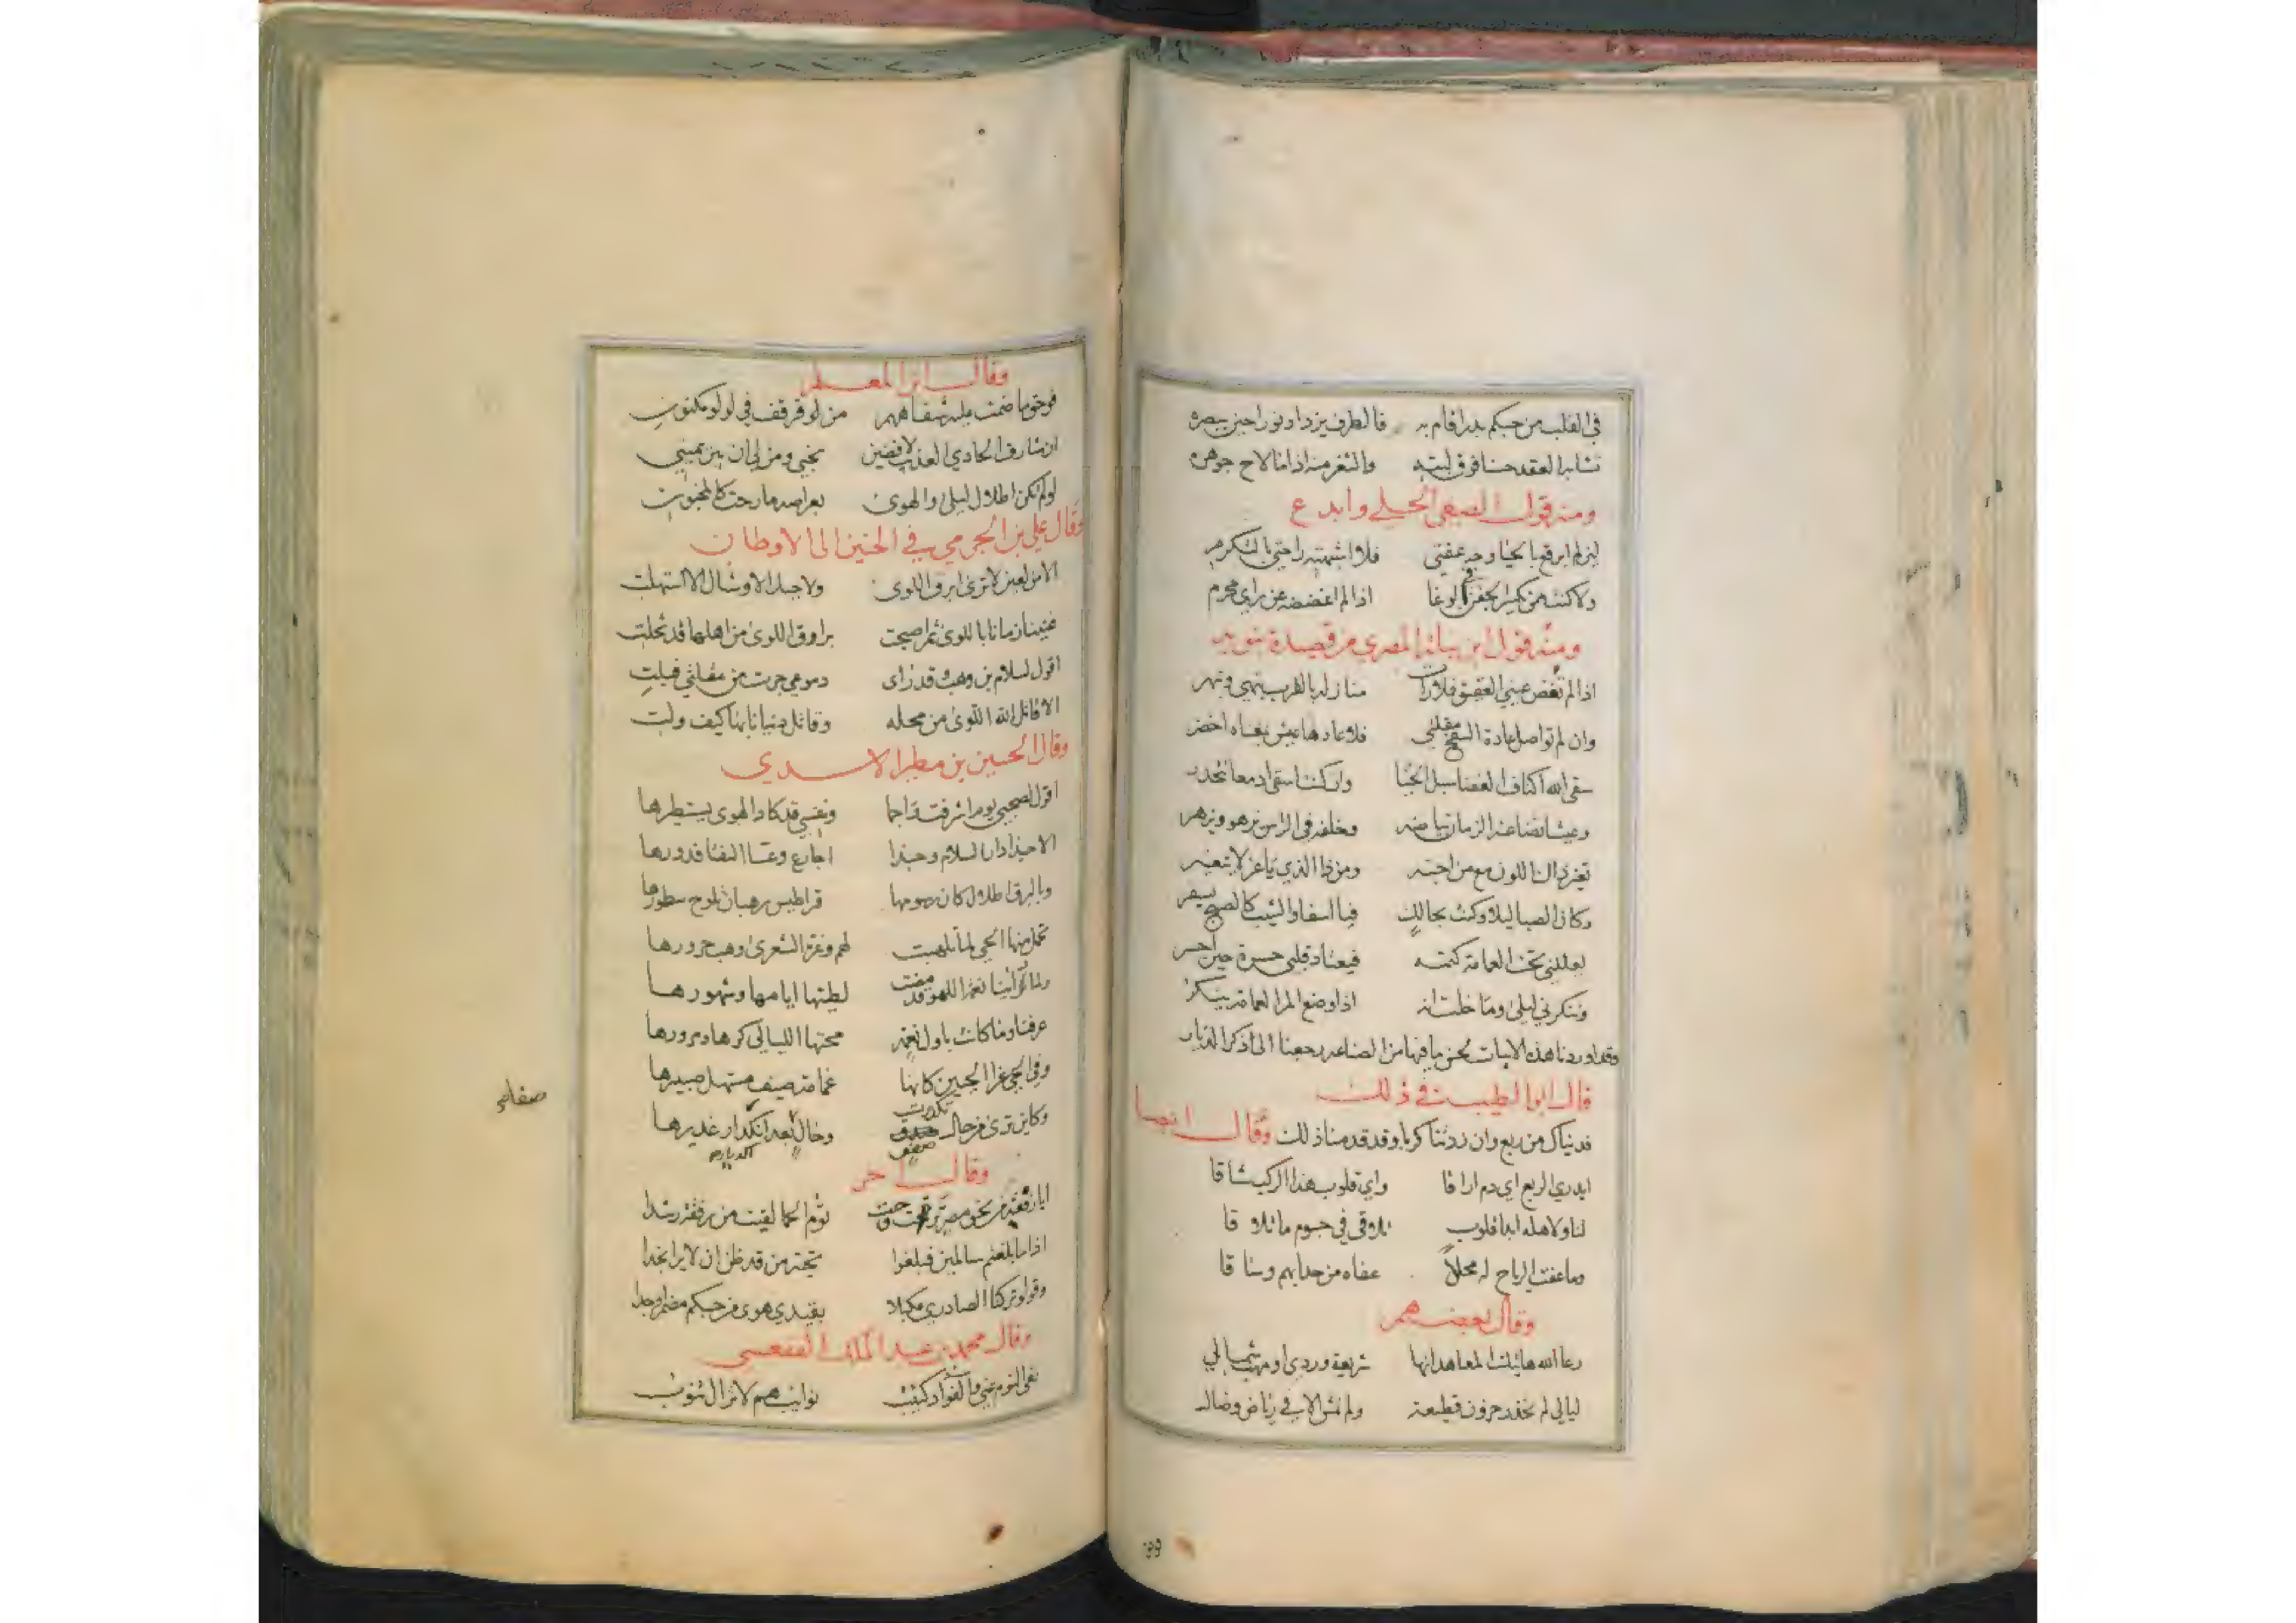 في القلب من حبكم بدر اقام به فالطرف يزداد نورا حين يبصره
تشابه العقد حسنا فوق لبته والثغر منه اذا ما لاح جوهره
ومنه قول الصفي الحلي وابدع
لئن لم ابرقع بالحيا وجه عفتي فلا اشبهته راحتي بالتكرم
ولا كنت ممن يكسر الجفن في الوغا اذا لم اغضضه عن راي محرم
ومنه قول ابن نباتة المصري من قصيدة نبويه
اذا لم تفض عيني العقيق فلا رات منازله بالقرب تبهى وتبهر
وان لم تواصل عادة السفح مقلتي فلا عادها عيش بمغناه اخضر
سقى الله اكناف الغضا سبل الحيا وان كنت اسقى ادمعا تتحدر
وعيشا نضا عنه الزمان بياضه وخلفه في الراس يزهو ويزهر
تغير ذاك اللون مع من احبه ومن ذا الذي يا عز لا يتغير
وكان الصبا ليلا وكنت بحالم فيا اسفا والشيب كالصبح يسفر
يعللني تحت العمامة كتمه فيعتاد قلبي حسرة حين احسر
وتنكرني ليلى وما خلت انه اذا وضع المرا العمامة ينكر
وقد اوردنا هذه الابيات لحسن ما فيها من الصناعه رجعنا الى ذكر الديار
قال ابو الطيب في ذلك
فديناك من ربع وان زدتنا كربا وقد قدمنا ذلك وقال ايضا
ايدري الربع اي دم اراقا واي قلوب هذا الركب شاقا
لنا ولاهله ابدا قلوب تلاقى في جسوم ما تلاقا
وما عفت الرياح له محلا عفاه من حدا بهم وساقا
وقال بعضهم
رعا الله هاتيك المعاهد انها شريعة وردي او مهب شمالي
ليالي لم نحذر حزون قطيعة ولم نمش الا في رياض وصال
وقال ابن المعلم
لو لم تكن اطلال ليلى والهوى بعراصه ما رحت كالمجنون
وقال علي بن الجرمي في الحنين الى الاوطان
الا من لعين لا ترى ابرق اللوى ولا جبل الاوشال الا استهلت
غنينا زمانا باللوى ثم اصبحت براق اللوى من اهلها قد تخلت
اقول لسلام بن وهب وقد راى دموعي جرت من مقلتي فبلت
الا قاتل الله اللوى من محله وقاتل دنيانا بها كيف ولت
وقال الحسين بن مطير الاسدي
اقول لصحبي يوم اشرفت واجما ونفسي قد كاد الهوى يستطيرها
الا حبذا دار السلام وحبذا اجارع وعسا النقا فدورها
وبالبرق اطلال كان رسومها قراطيس رهبان تلوح سطورها
تحمل منها الحي لما تلهبت لهم وغرة الشعرى وهب حرورها
ولما راينا نعم اللهو قد مضت لطيتها ايامها وشهورها
عرفنا وما كانت باول نعمة محتها الليالي كرها ومرورها
وفي الحي غرا الجبين كانها غمامة صيف مستهل صبيرها
وكاين ترى من حال تكدرت صفو وحال بعد انكدار غديرها
صفاها
وقال اخر
اذا ما بلغتم سالمين فبلغوا تحية من قد ظن ان لا يرا نجدا
وقولوا تركنا الصادري مكبلا بقيد هوى من حبكم مضمرا وجدا
وقال محمد بن عبد الملك الفقعسي
نفى النوم عني والفواد كئيب نوائب هم لا تزال تنوب